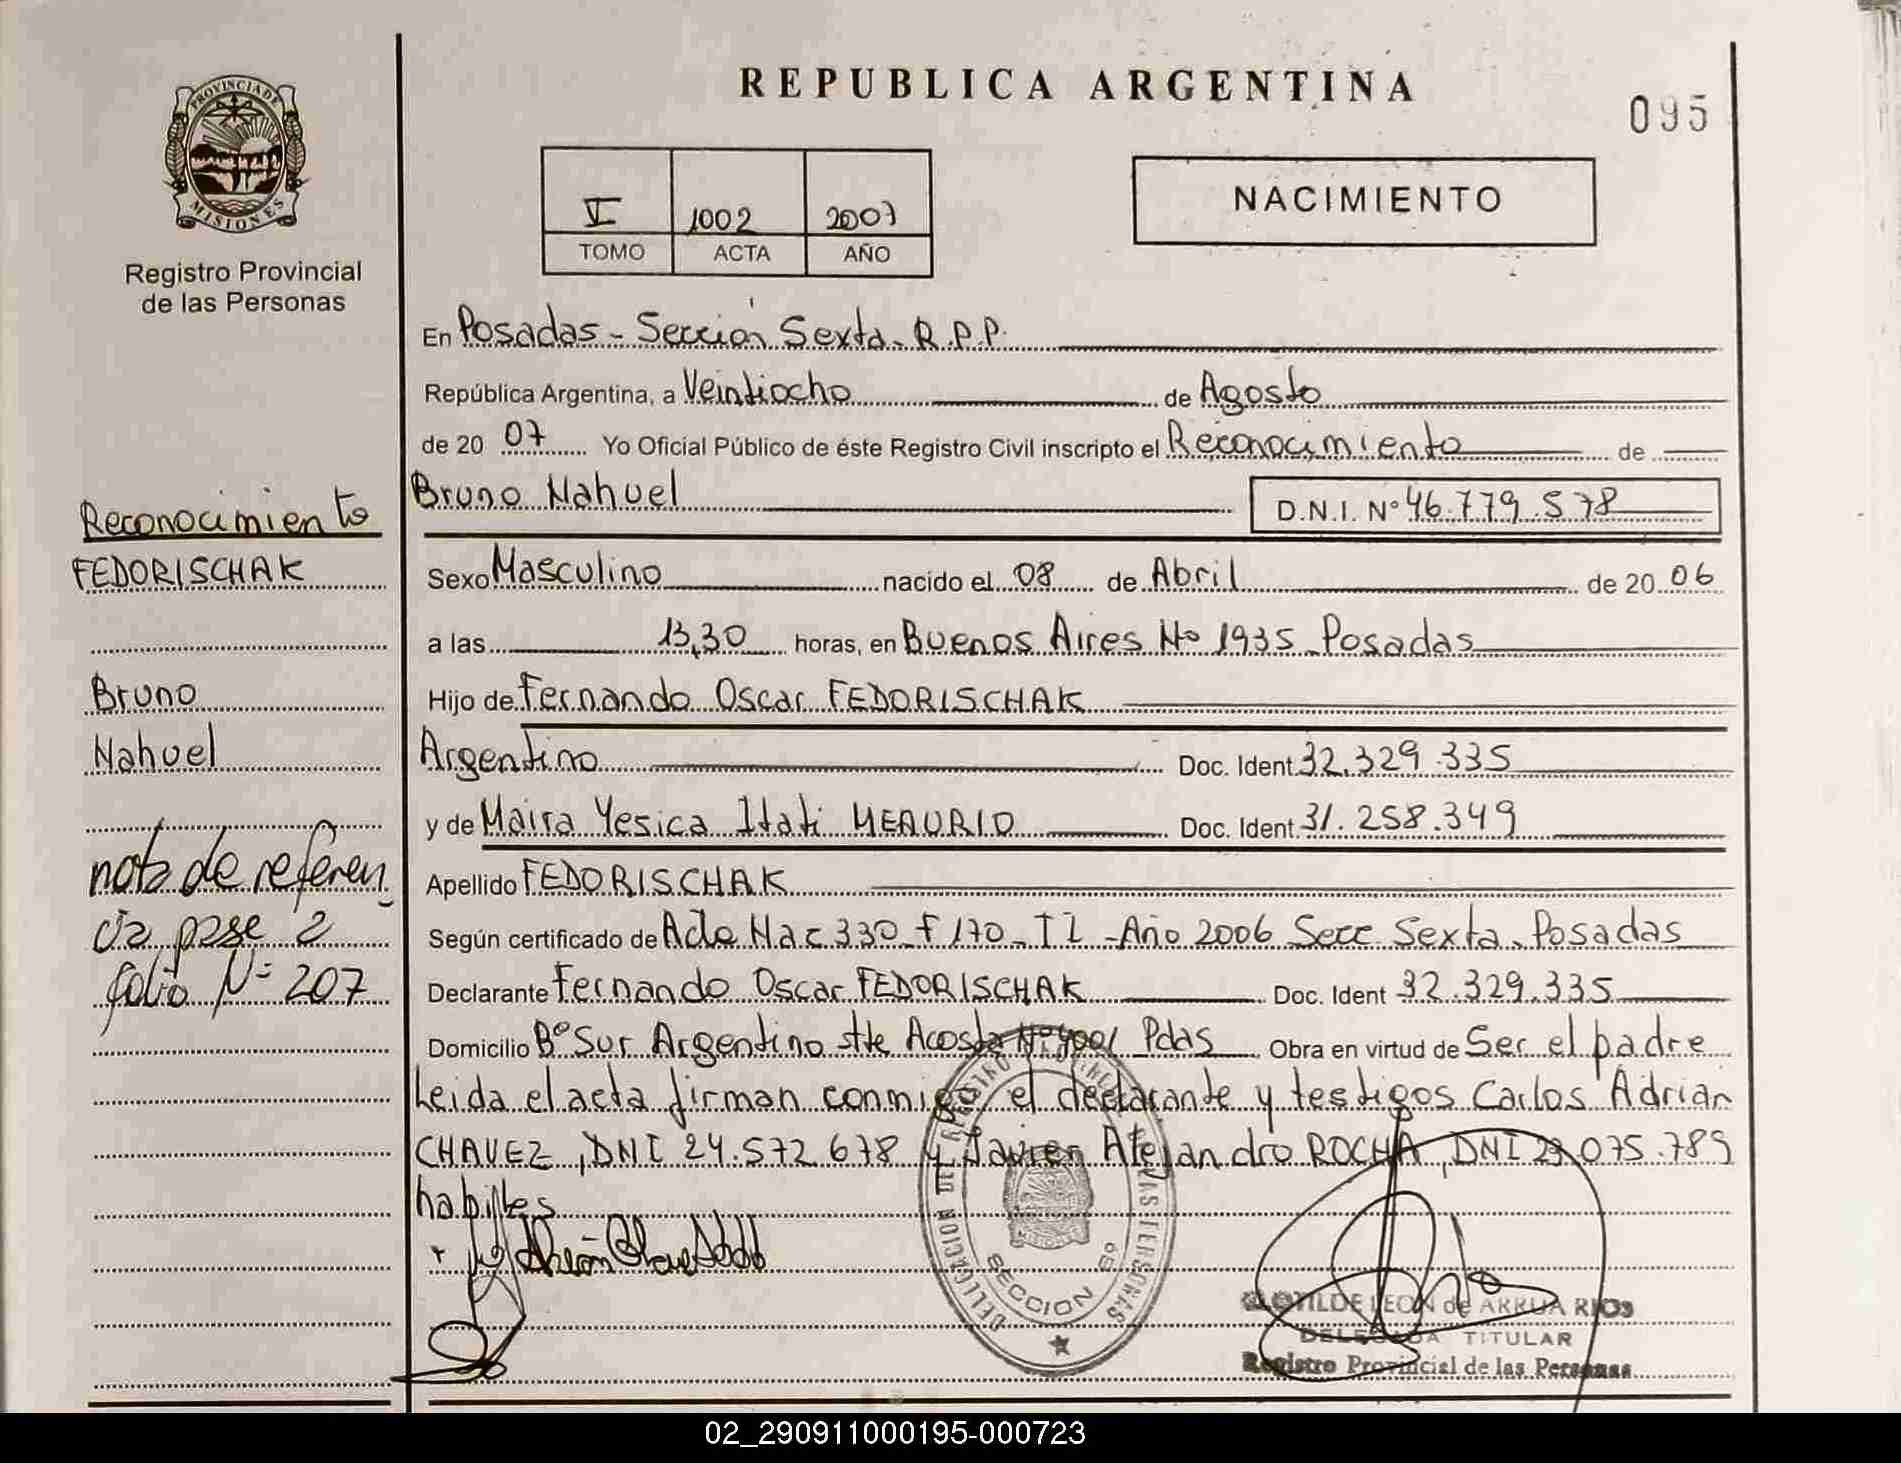 REPUBLICA ARGENTINA
095
PROVINCIA DE
MISIONES
Registro Provincial
de las Personas
V 1002 2007
TOMO ACTA AÑO
NACIMIENTO
En Posadas - Sección Sexta - R.P.P.
República Argentina, a Veintiocho de Agosto
de 20 07 Yo Oficial Público de éste Registro Civil inscripto el Reconocimiento de
Bruno Nahuel D.N.I. Nº 46.779.578
Sexo Masculino nacido el 08 de Abril de 20 06
a las 13,30 horas, en Buenos Aires Nº 1935 - Posadas
Hijo de Fernando Oscar FEDORISCHAK
Argentino Doc. Ident 32.329.335
y de Maira Yesica Itati MEAURIO Doc. Ident 31.258.349
Apellido FEDORISCHAK
Según certificado de Acta Nac 330 - F 170 - T I - Año 2006 Secc Sexta - Posadas
Declarante Fernando Oscar FEDORISCHAK Doc. Ident 32.329.335
Domicilio Bº Sur Argentino Acosta Nº Pdas Obra en virtud de Ser el padre
Leida el acta firman conmigo el declarante y testigos Carlos Adrian
CHAVEZ, DNI 24.572.678 y Javier Alejandro ROCHA, DNI 075.789
habiles
Reconocimiento
FEDORISCHAK
Bruno
Nahuel
nota de referen
cia pase a
folio Nº 207
DELEGACION DEL REGISTRO DE LAS PERSONAS
SECCION 6º
CLOTILDE LEON de ARRUA RIOS
DELEGADA TITULAR
Registro Provincial de las Personas
02_290911000195-000723